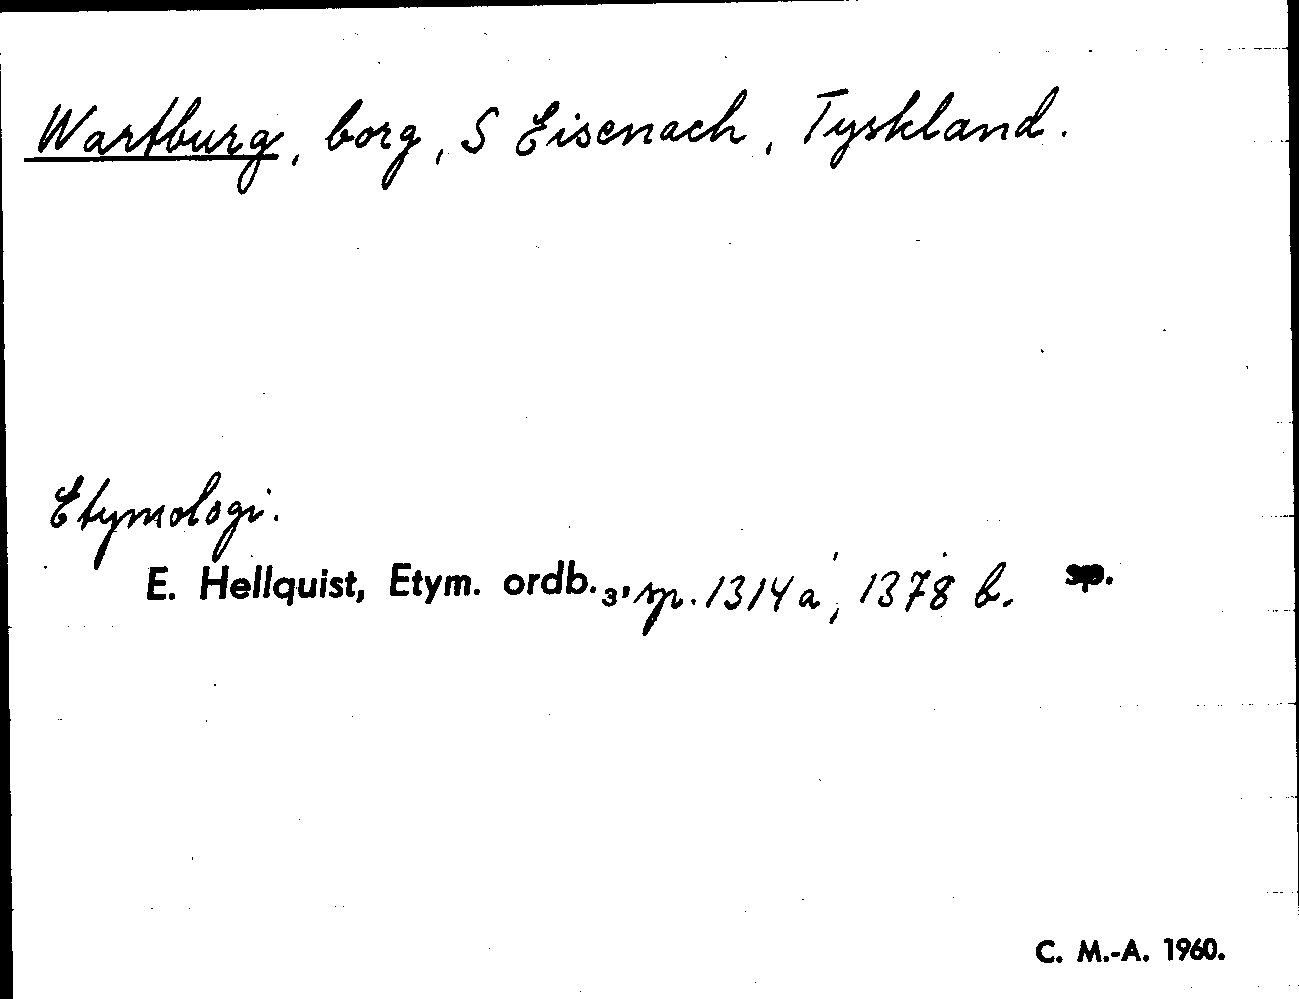 Wartburg, borg, S Eisenach, Tyskland.
Etymologi.
E. Hellquist, Etym. ordb.₃, sp. 1314 a, 1378 b. sp.
C. M.-A. 1960.